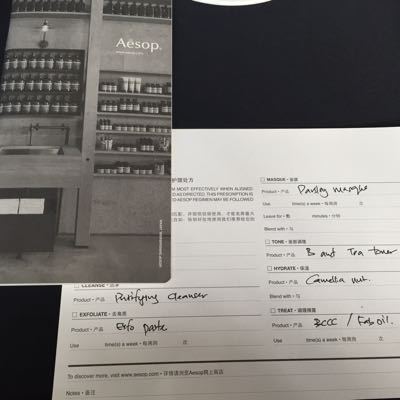 Aēsop.
www.aesop.com
护理处方
M MOST EFFECTIVELY WHEN ALIGNED
AS DIRECTED. THIS PRESCRIPTION IS
AESOP REGIMEN MAY BE FOLLOWED
CLEANSE
Product • 产品 Purifying Cleanser
EXFOLIATE • 去角质
Product • 产品 Exfo paste
Use time(s) a week • 每周用 次
MASQUE • 面膜
Product • 产品 Parsley masque
Use time(s) a week • 每周用 次
Leave for • 敷 minutes • 分钟
Blend with • 与
TONE • 面部调理
Product • 产品 B and Tea toner
HYDRATE • 保湿
Product • 产品 Camellia nut.
Blend with • 与
TREAT
Product • 产品 BCCC / Fab oil.
Use time(s) a week • 每周用 次
To discover more, visit www.aesop.com • 详情请浏览Aesop网上商店
Notes • 备注